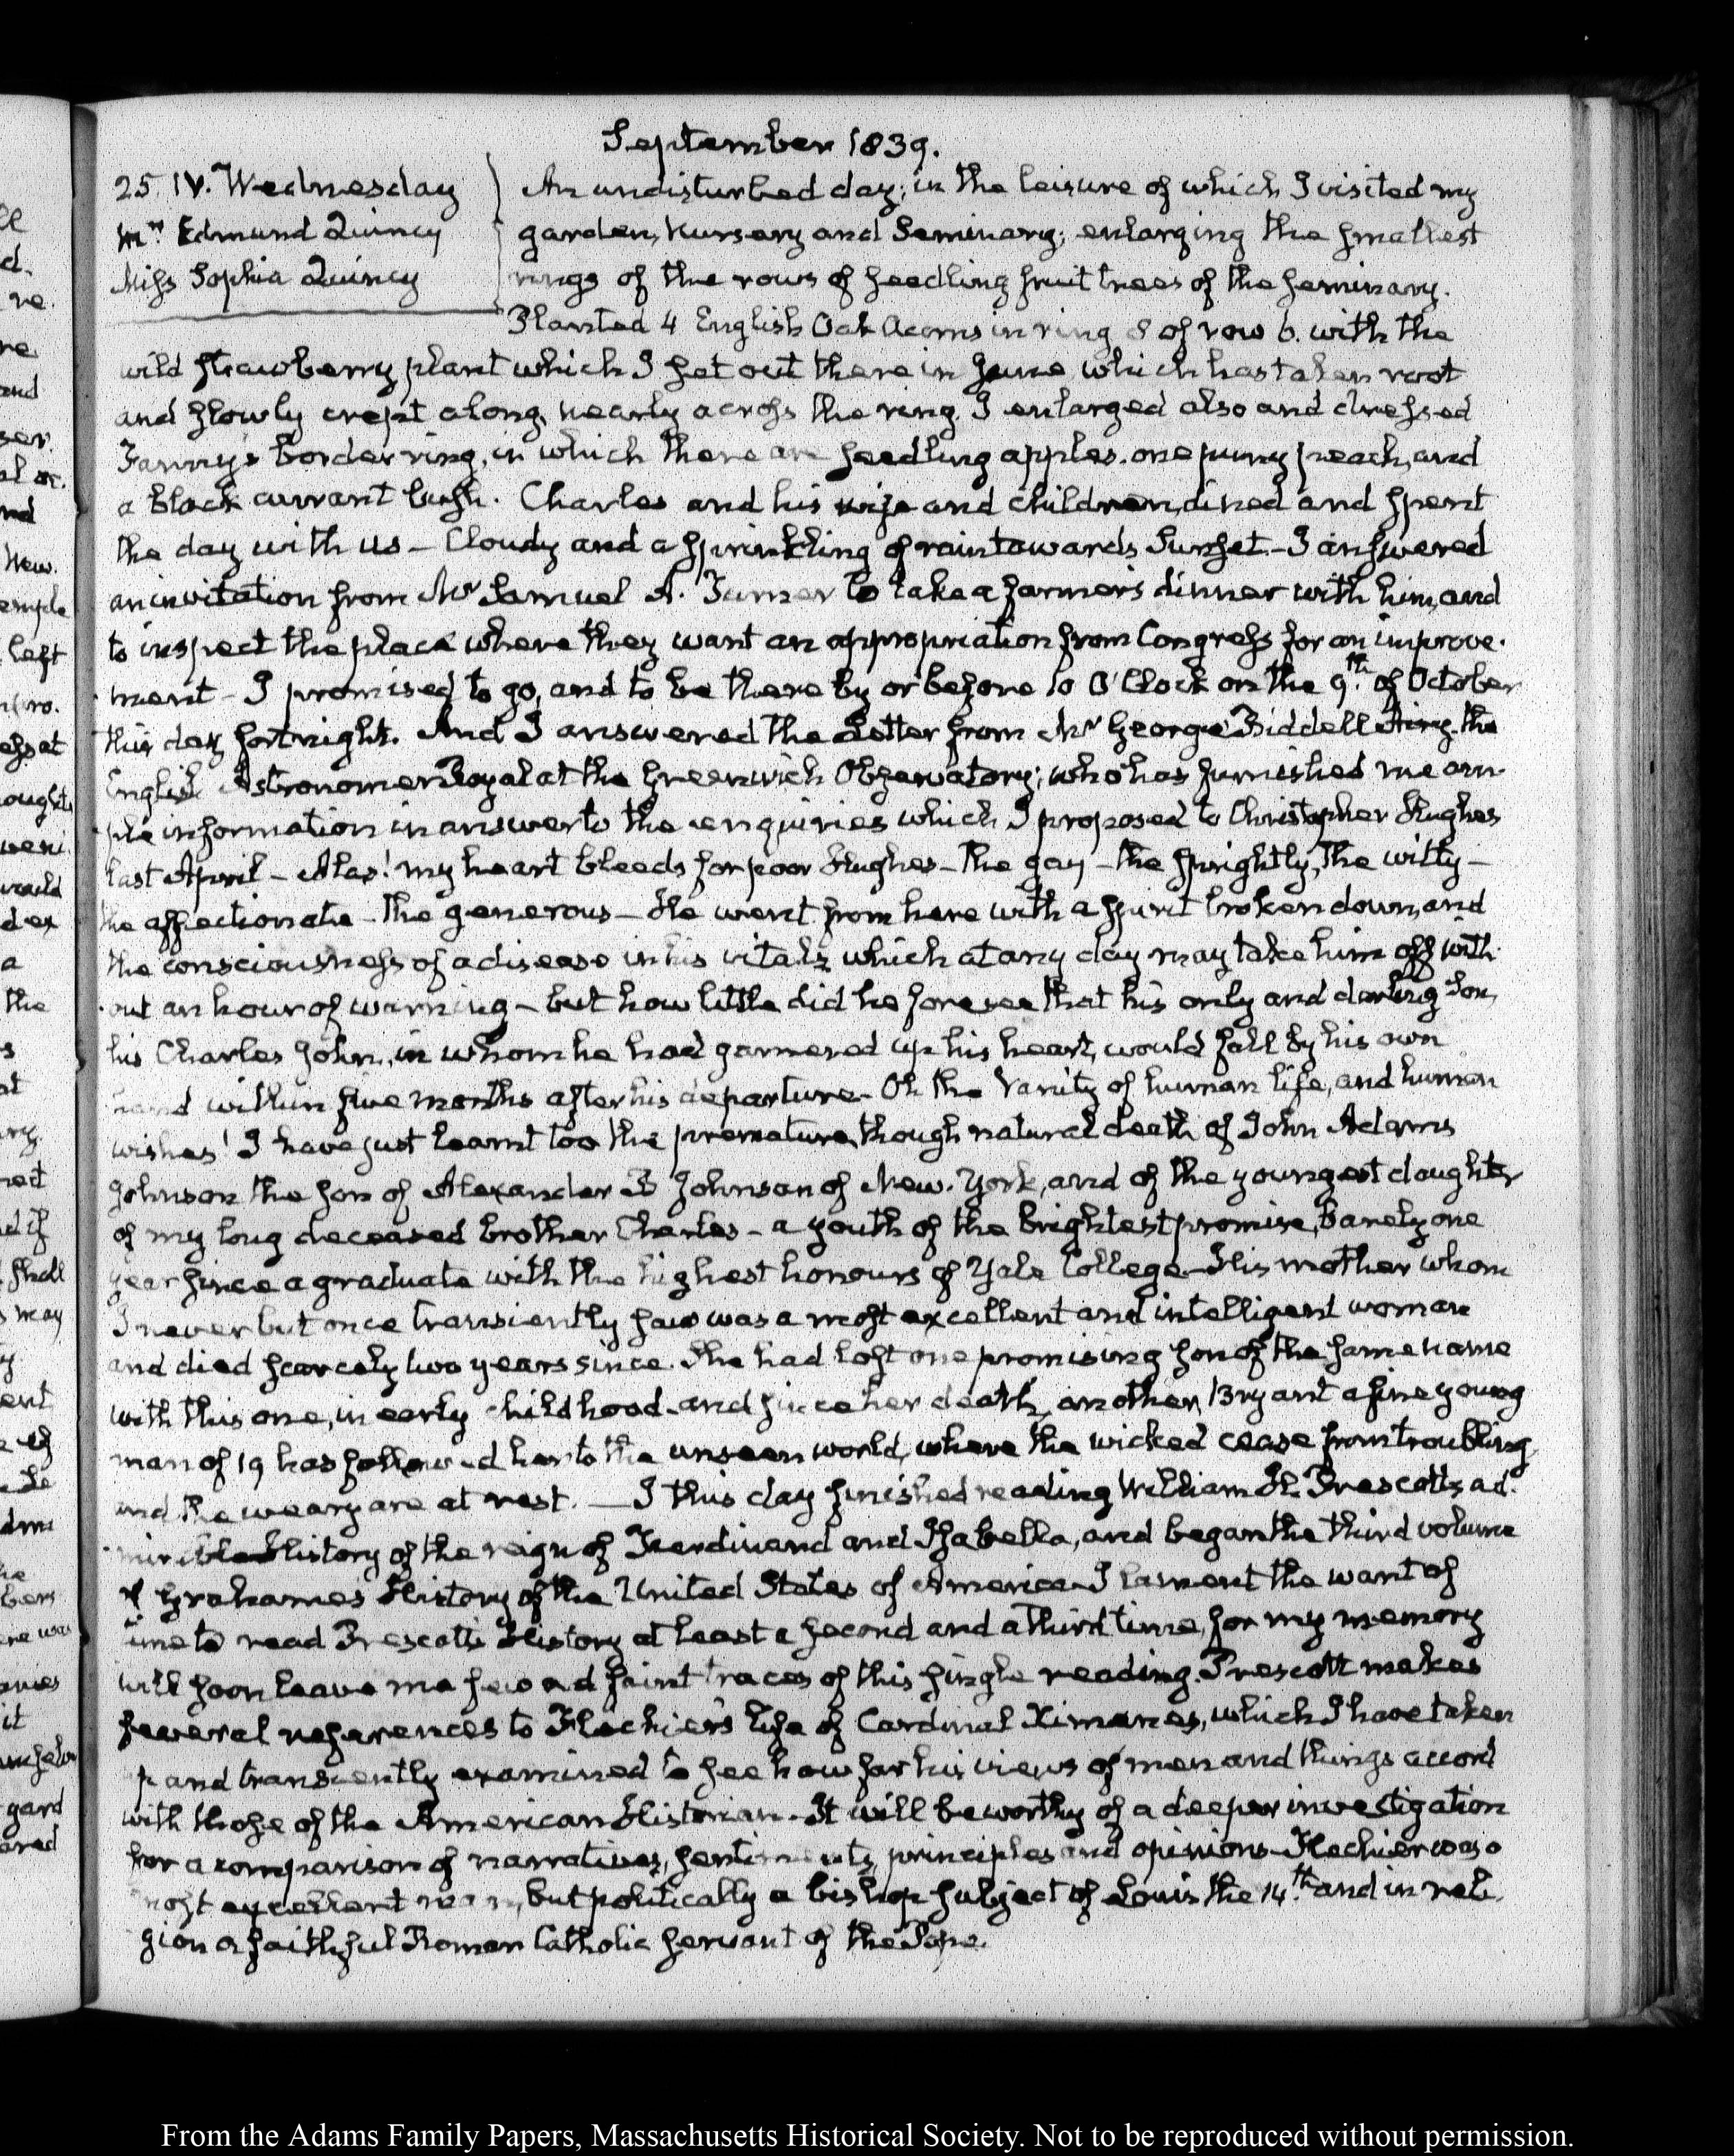 September 1839.
25. IV. Wednesday
Mrs. Edmund Quincy
Miss Sophia Quincy
An undisturbed day; in the leisure of which I visited my
garden, Nursery and Seminary; enlarging the smallest
rings of the rows of seedling fruit trees of the seminary.
Planted 4 English Oak Acorns in ring 8 of row 6. with the
wild strawberry plant which I set out there in June, which has taken root
and slowly crept along, nearly across the ring. I enlarged also and dressed
Fanny's border ring, in which there are seedling apples. one puny peach, and
a black currant bush. Charles and his wife and children, dined and spent
the day with us – Cloudy and a sprinkling of rain towards Sunset – I answered
an invitation from Mr Samuel A. Turner to take a farmer's dinner with him, and
to inspect the place where they want an appropriation from Congress for an improve-
ment – I promised to go, and to be there by or before 10 O'Clock on the 9th. of October
this day fortnight. And I answered the Letter from Mr George Biddell Airy. the
English Astronomer Royal at the Greenwich Observatory; who has furnished me am-
ple information in answer to the enquiries which I proposed to Christopher Hughes
last April – Alas! my heart bleeds for poor Hughes – the gay – the sprightly, the witty –
the affectionate – the generous – He went from here with a spirit broken down, and
the consciousness of a disease in his vitals which at any day may take him off with-
out an hour of warning – but how little did he foresee that his only and darling Son,
his Charles John, in whom he had garnered up his heart, would fall by his own
hand within five months after his departure – Oh the Vanity of human life, and human
wishes! I have just learnt too the premature, though natural death of John Adams
Johnson the son of Alexander B Johnson of New-York, and of the youngest daughter
of my long deceased brother Charles – a youth of the brightest promise, barely one
year since a graduate with the highest honours of Yale College – His mother whom
I never but once transiently saw was a most excellent and intelligent woman
and died scarcely two years since. She had lost one promising son of the same name
with this one, in early childhood – and since her death, another, Bryant a fine young
man of 19 has followed her to the unseen world, where the wicked cease from troubling
and the weary are at rest. — I this day finished reading William H. Prescott's ad-
mirable History of the reign of Ferdinand and Isabella, and began the third volume
of Grahame's History of the United States of America – I lament the want of
time to read Prescott's History at least a second and a third time, for my memory
will soon leave me few and faint traces of this single reading. Prescott makes
several references to Flechier's life of Cardinal Ximenes, which I have taken
up and transiently examined to see how far his views of men and things accord
with those of the American Historian – It will be worthy of a deeper investigation
for a comparison of narratives, sentiments, principles and opinions – Flechier was a
most excellent man, but politically a bishop subject of Louis the 14th. and in reli-
gion a faithful Roman Catholic servant of the Pope.
From the Adams Family Papers, Massachusetts Historical Society. Not to be reproduced without permission.